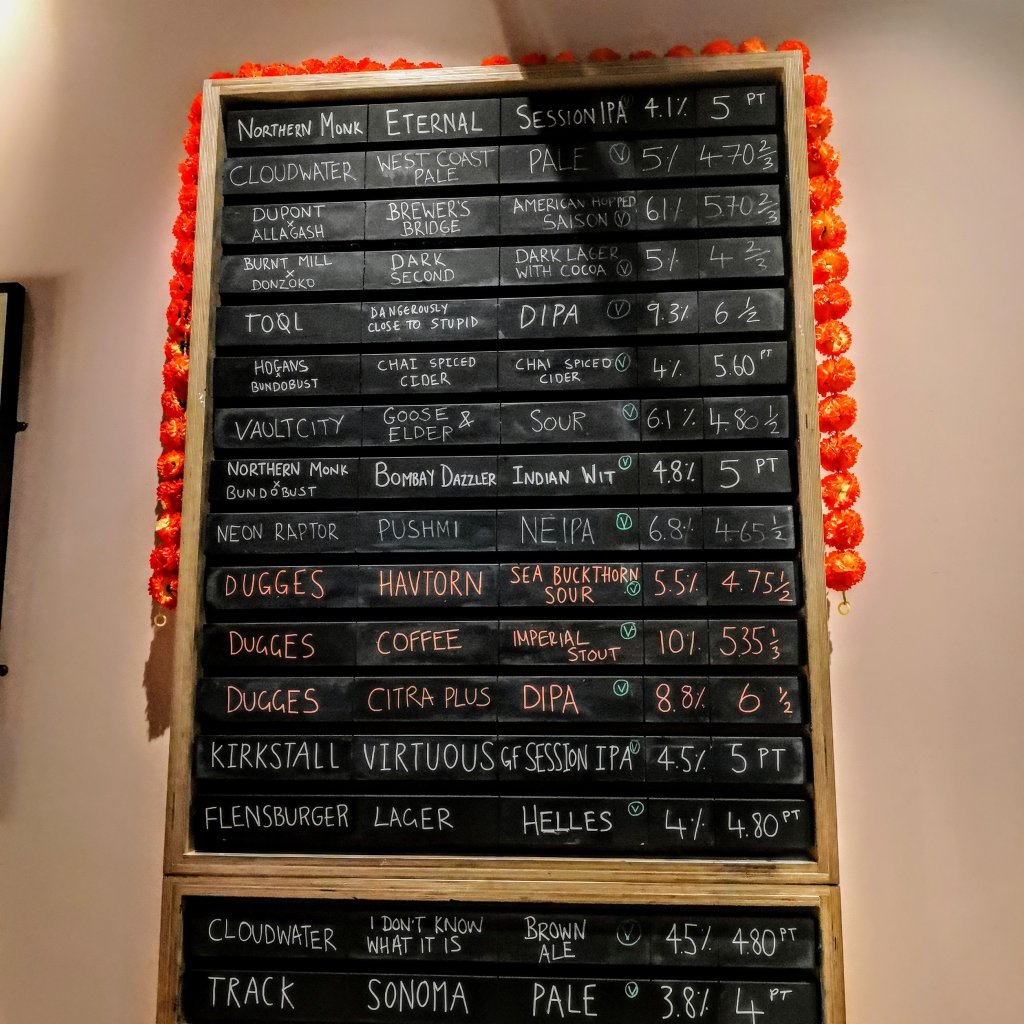 NORTHERN MONK ETERNAL SESSION IPA V 4.1% 5 PT
CLOUDWATER WEST COAST PALE PALE V 5% 4.70 2/3
DUPONT x ALLAGASH BREWER'S BRIDGE AMERICAN HOPPED SAISON V 6.1% 5.70 2/3
BURNT MILL x DONZOKO DARK SECOND DARK LAGER WITH COCOA V 5% 4 2/3
TOQL DANGEROUSLY CLOSE TO STUPID DIPA V 9.3% 6 1/2
HOGANS x BUNDOBUST CHAI SPICED CIDER CHAI SPICED CIDER V 4% 5.60 PT
VAULT CITY GOOSE & ELDER SOUR V 6.1% 4.80 1/2
NORTHERN MONK x BUNDOBUST BOMBAY DAZZLER INDIAN WIT V 4.8% 5 PT
NEON RAPTOR PUSHMI NEIPA V 6.8% 4.65 1/2
DUGGES HAVTORN SEA BUCKTHORN SOUR V 5.5% 4.75 1/2
DUGGES COFFEE IMPERIAL STOUT V 10% 5.35 1/3
DUGGES CITRA PLUS DIPA V 8.8% 6 1/2
KIRKSTALL VIRTUOUS GF SESSION IPA V 4.5% 5 PT
FLENSBURGER LAGER HELLES V 4% 4.80 PT
CLOUDWATER I DON'T KNOW WHAT IT IS BROWN ALE V 4.5% 4.80 PT
TRACK SONOMA PALE V 3.8% 4 PT